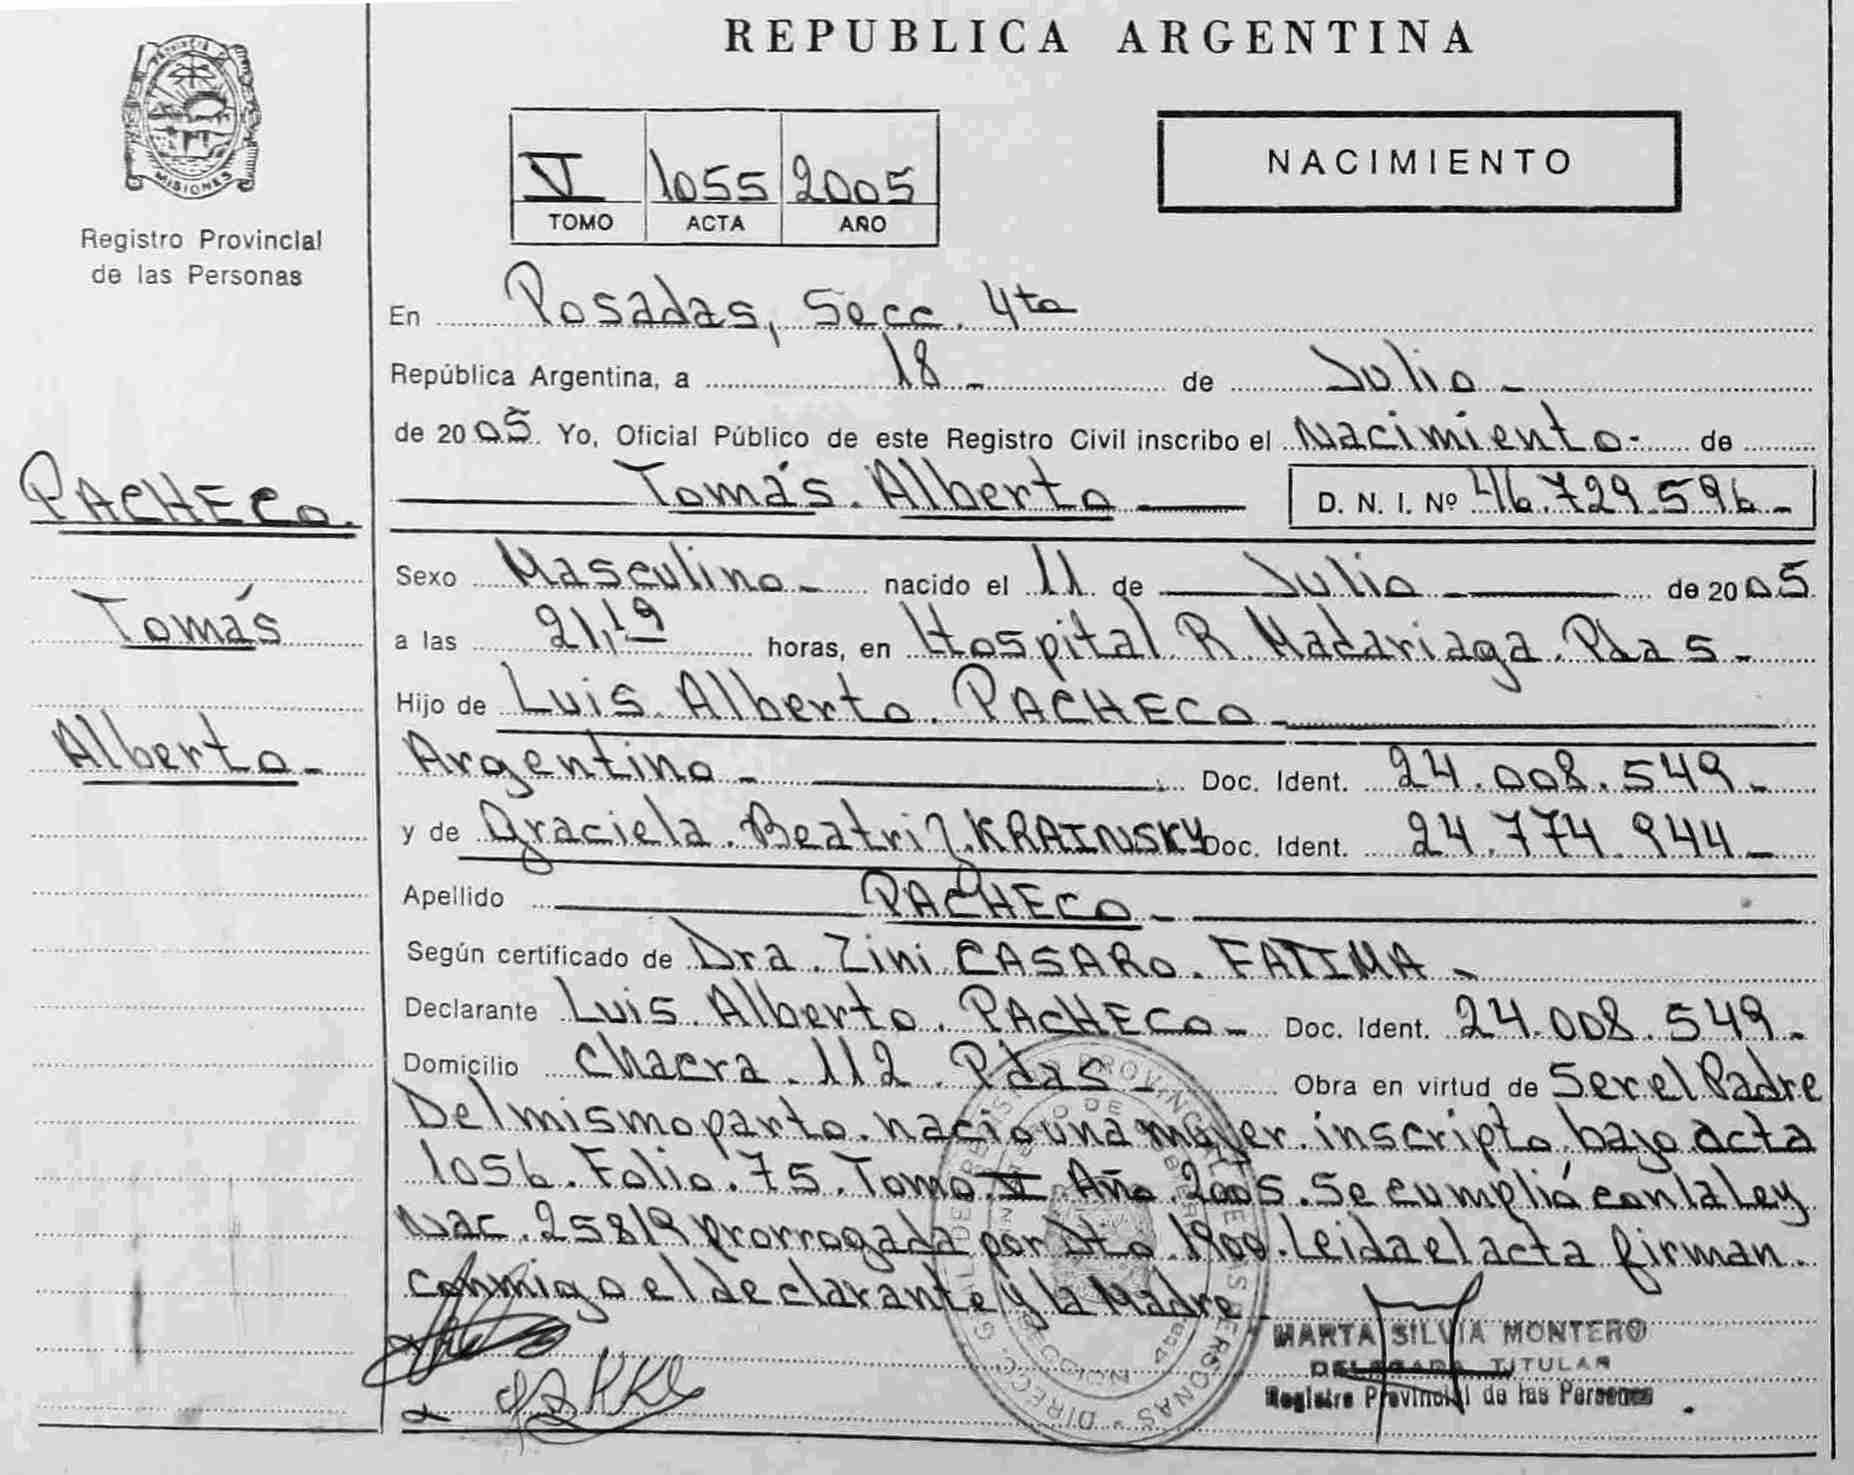 REPUBLICA ARGENTINA
MISIONES
Registro Provincial
de las Personas
V 1055 2005
TOMO ACTA AÑO
NACIMIENTO
En Posadas, Secc. 4ta
República Argentina, a 18 - de Julio -
de 2005 Yo, Oficial Público de este Registro Civil inscribo el Nacimiento - de
Tomás. Alberto D. N. I. Nº 46.729.596 -
PACHECO.
Tomás
Alberto -
Sexo Masculino - nacido el 11 de Julio - de 2005
a las 21,19 horas, en Hospital R. Madariaga. Pdas -
Hijo de Luis. Alberto. PACHECO -
Argentino - Doc. Ident. 24.008.549 -
y de Graciela. Beatriz. KRAINSKY Doc. Ident. 24.774.944 -
Apellido PACHECO -
Según certificado de Dra. Zini CASARO. FATIMA -
Declarante Luis. Alberto. PACHECO - Doc. Ident. 24.008.549 -
Domicilio Chacra. 112. Pdas - Obra en virtud de Ser el Padre
Del mismo parto. nacio una mujer. inscripto. bajo acta
1056. Folio. 75. Tomo. V Año. 2005. Se cumplió con la Ley
Nac. 25819 prorrogada por Dto. 1900. Leida el acta firman.
conmigo el declarante y la Madre -
MARTA SILVIA MONTERO
DELEGADA TITULAR
Registro Provincial de las Personas